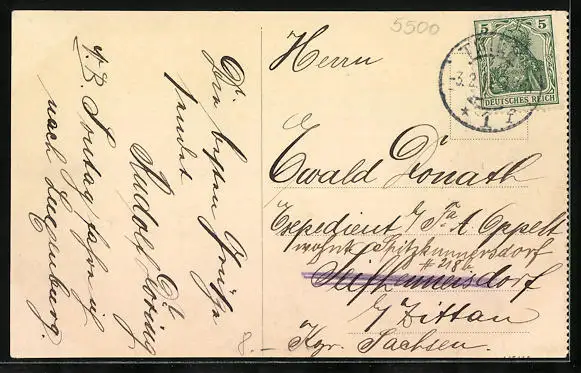 5500
5 5
DEUTSCHES REICH
* 1 f
Herrn
Ewald Donath
Expedient b/ Fa A. Oppelt
wohnt Spitzkunnersdorf
# 218b
Seifhennersdorf
b/ Zittau
Kgr. Sachsen.
Die besten Grüße
sendet
Rudolf
N.B. Sontag fahre ich
nach
8.-